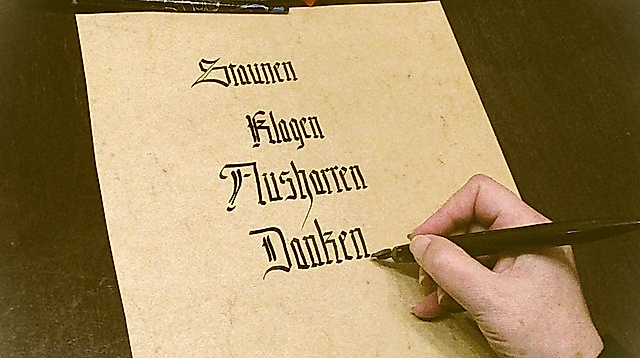 Staunen
Klagen
Ausharren
Danken